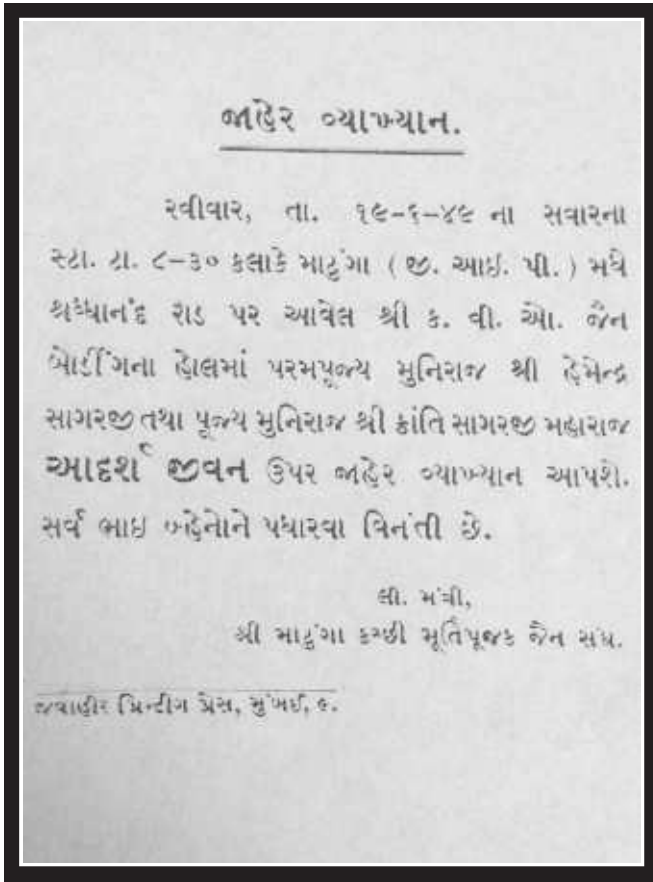 જાહેર વ્યાખ્યાન.
રવીવાર, તા. ૧૯-૬-૪૯ ના સવારના
સ્ટા. ટા. ૮-૩૦ કલાકે માટુંગા ( જી. આઈ. પી. ) મધે
શ્રધ્ધાનંદ રોડ પર આવેલ શ્રી ક. વી. ઓ. જૈન
બોર્ડીંગના હોલમાં પરમપૂજ્ય મુનિરાજ શ્રી હેમેન્દ્ર
સાગરજી તથા પૂજ્ય મુનિરાજ શ્રી કાંતિ સાગરજી મહારાજ
આદર્શ જીવન ઉપર જાહેર વ્યાખ્યાન આપશે.
સર્વ ભાઇ બહેનોને પધારવા વિનંતી છે.
લી. મંત્રી,
શ્રી માટુંગા કચ્છી મૂર્તિપૂજક જૈન સંઘ.
જવાહીર પ્રિન્ટીંગ પ્રેસ, મુંબઈ, ૯.